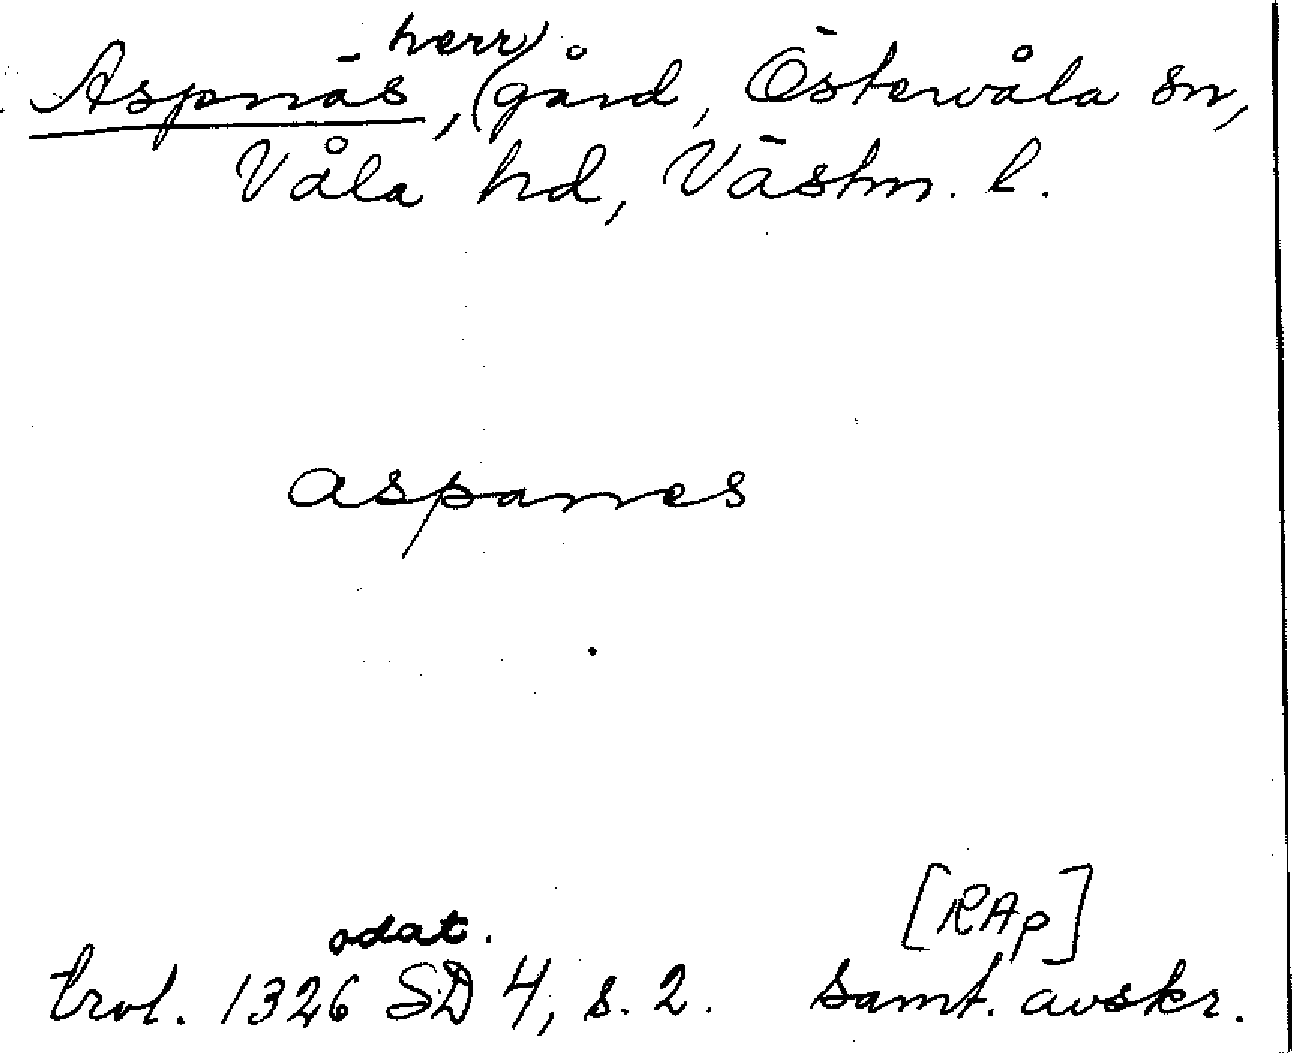 Aspnäs, (herr)gård, Östervåla sn,
Våla hd, Västm. l.
aspanes
odat. [RAp]
trol. 1326 SD 4, s. 2. samt. avskr.